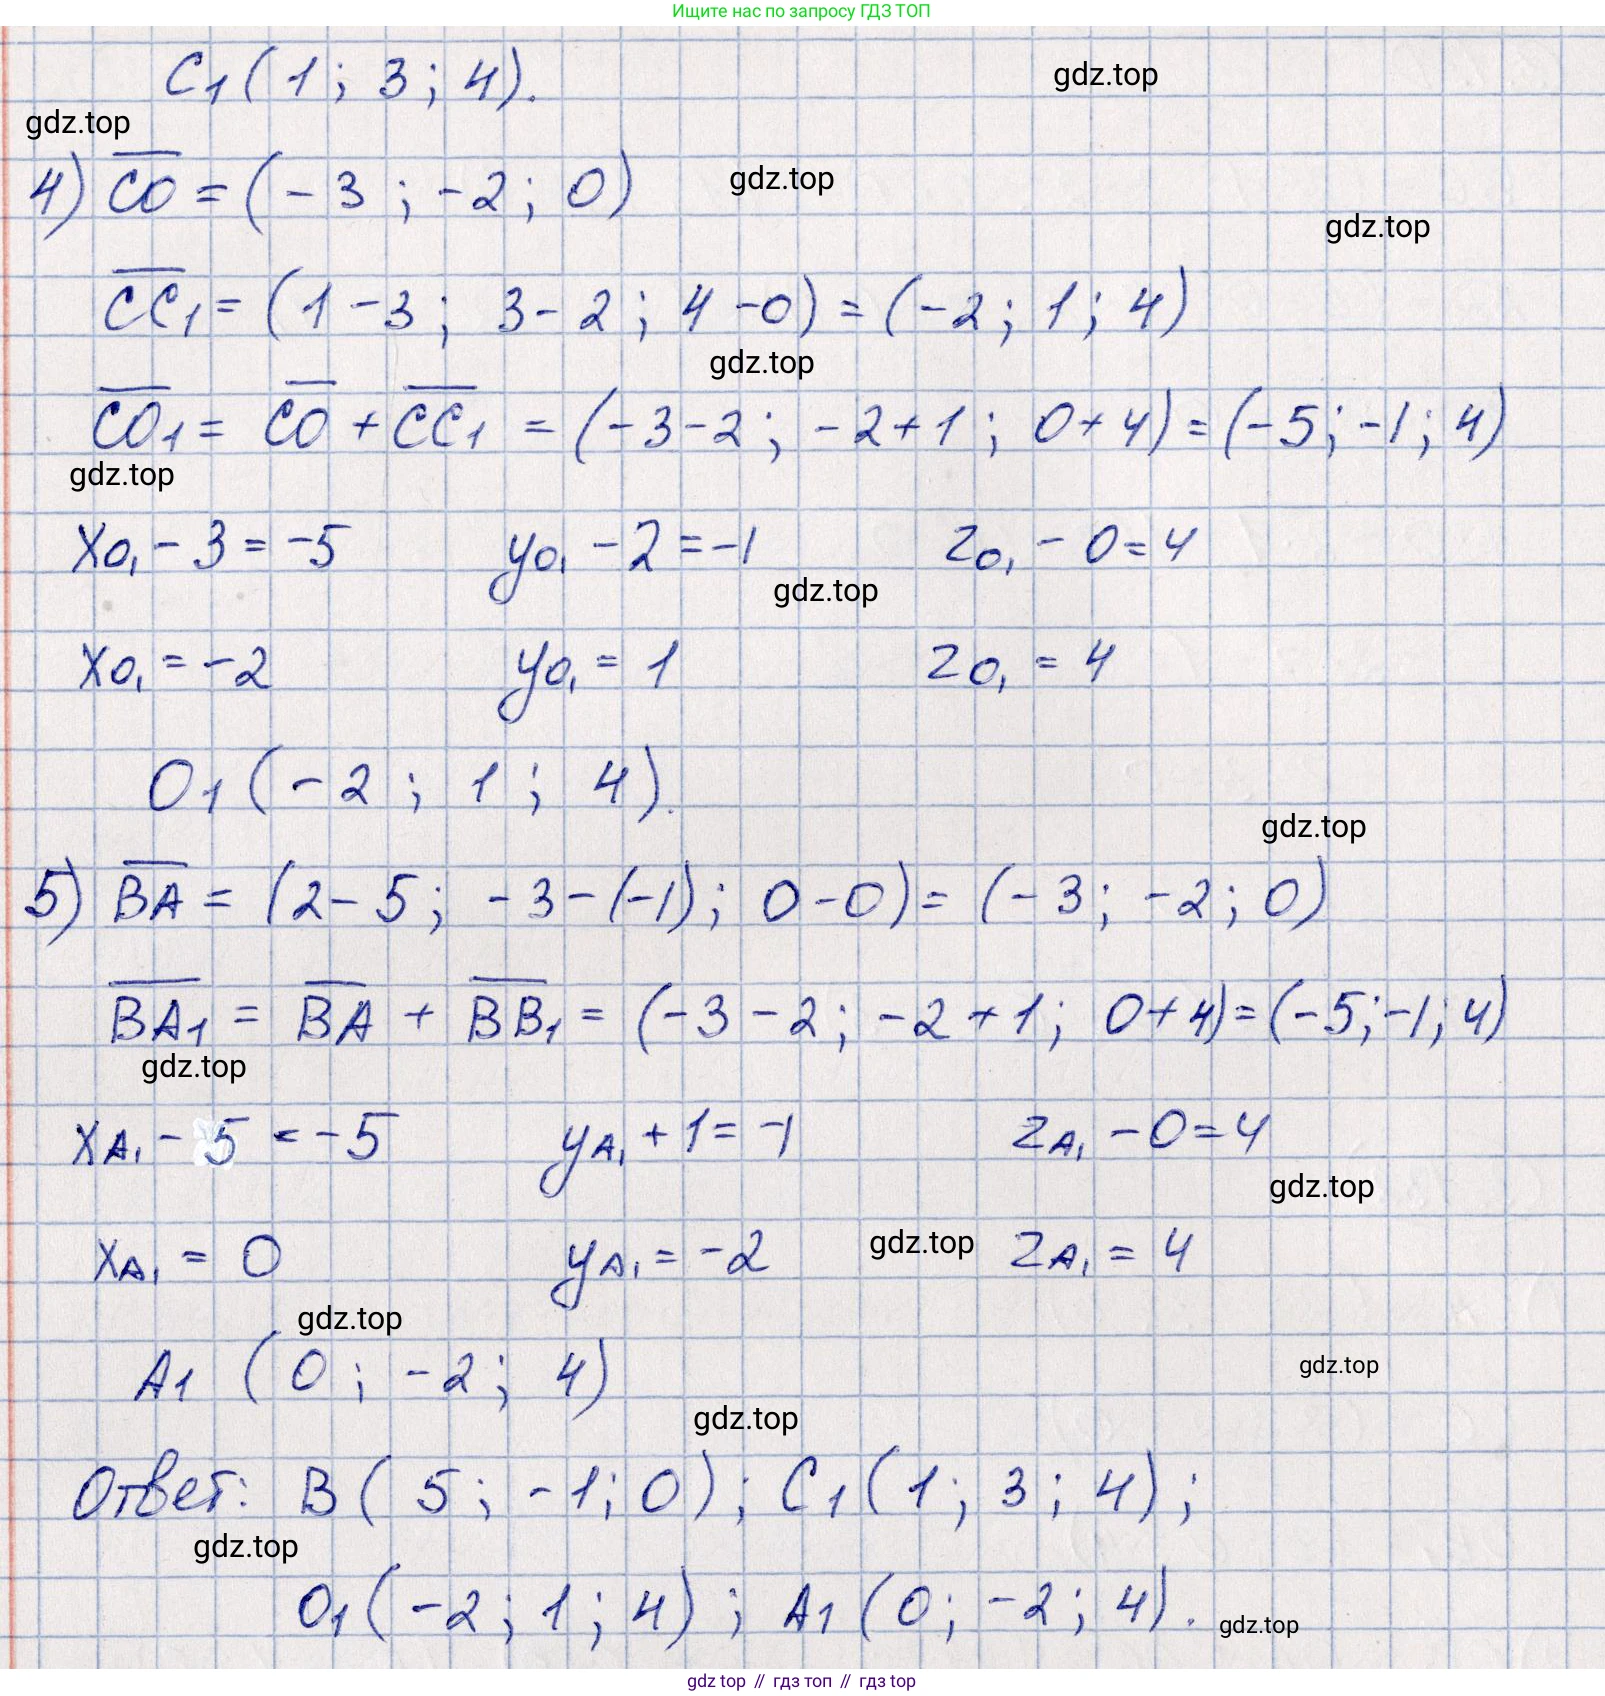 Ищите нас по запросу ГДЗ ТОП
C₁(1; 3; 4).
gdz.top
gdz.top
4) C̅O̅ = (-3; -2; 0)
gdz.top
gdz.top
C̅C̅₁ = (1-3; 3-2; 4-0) = (-2; 1; 4)
gdz.top
C̅O̅₁ = C̅O̅ + C̅C̅₁ = (-3-2; -2+1; 0+4) = (-5; -1; 4)
gdz.top
x_{O₁} - 3 = -5 y_{O₁} - 2 = -1 z_{O₁} - 0 = 4
gdz.top
x_{O₁} = -2 y_{O₁} = 1 z_{O₁} = 4
O₁(-2; 1; 4).
gdz.top
5) B̅A̅ = (2-5; -3-(-1); 0-0) = (-3; -2; 0)
B̅A̅₁ = B̅A̅ + B̅B̅₁ = (-3-2; -2+1; 0+4) = (-5; -1; 4)
gdz.top
x_{A₁} - 5 = -5 y_{A₁} + 1 = -1 z_{A₁} - 0 = 4
gdz.top
x_{A₁} = 0 y_{A₁} = -2 gdz.top z_{A₁} = 4
gdz.top
A₁ (0; -2; 4)
gdz.top
gdz.top
Ответ: B(5; -1; 0); C₁(1; 3; 4);
gdz.top
O₁(-2; 1; 4); A₁(0; -2; 4).
gdz.top
gdz top // гдз топ // gdz top